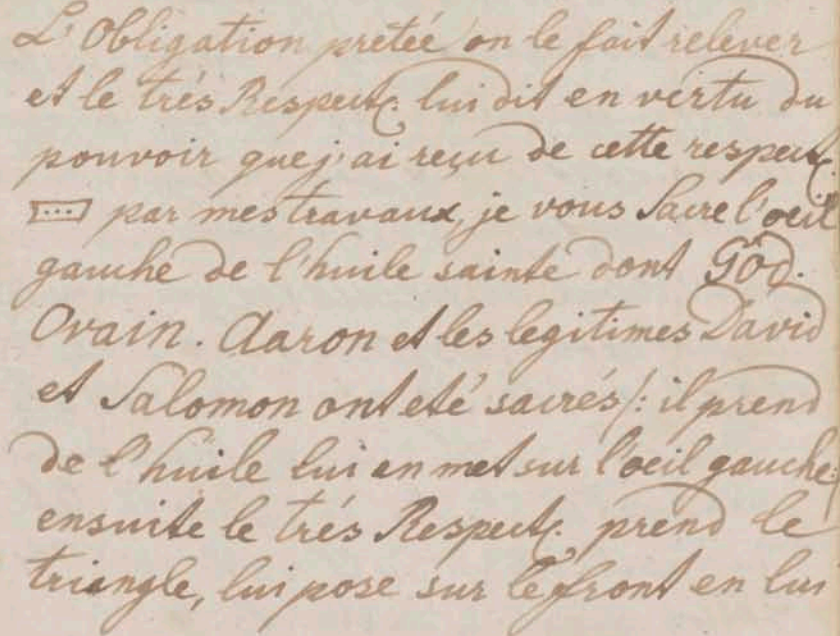 L'Obligation pretée on le fait relever
et le trés Respect. lui dit en vertu du
pouvoir que j'ai reçu de cette respect.
par mes travaux, je vous sacre l'oeil
gauche de l'huile sainte dont God.
Orain. Aaron et les legitimes David
et Salomon ont eté sacrés /: il prend
de l'huile lui en met sur l'oeil gauche
ensuite le trés Respect. prend le
triangle, lui pose sur le front en lui